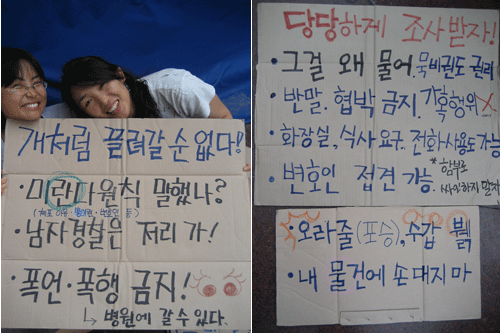 개처럼 끌려갈 순 없다!
· 미란다 원칙 말했나?
· 남자경찰은 저리 가!
· 폭언·폭행 금지!
↳ 병원에 갈 수 있다.
당당하게 조사받자!
· 그걸 왜 물어. 묵비권도 권리
· 반말. 협박 금지. 가혹행위 X
· 화장실, 식사 요구. 전화사용도 가능
· 변호인 접견 가능.
* 함부로
싸인하지 말자
· 오라줄(포승), 수갑 뷁
· 내 물건에 손대지 마